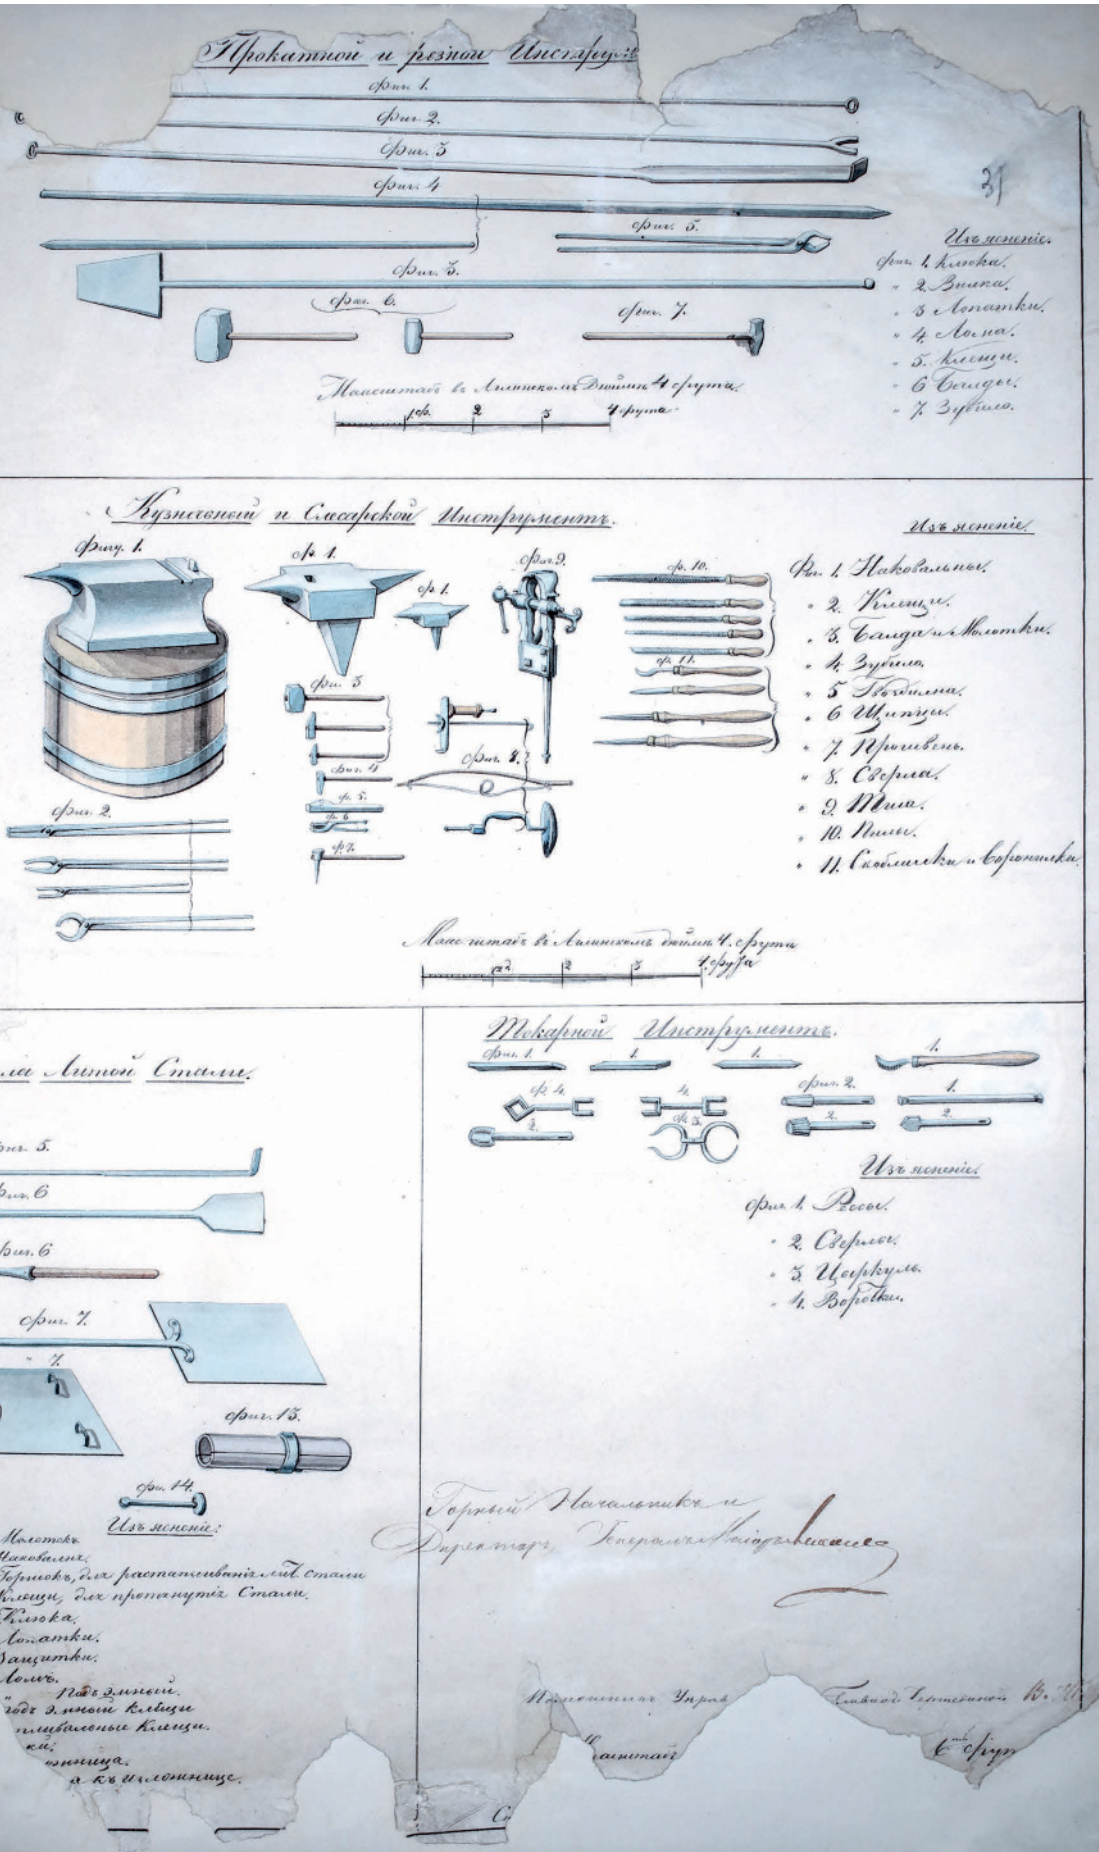 Прокатной и резной Инстру
фиг. 1.
фиг. 2.
фиг. 3
фиг. 4
31
фиг. 5.
фиг. 3.
фиг. 6.
фиг. 7.
Изъясненіе.
фиг. 1. Клюка.
" 2. Вилка.
" 3 Лопатки.
" 4. Лома.
" 5. Клещи.
" 6 Балды.
" 7. Зубило.
Масштабъ въ Аглинскомъ Дюймѣ 4 фута.
1.ф. 2 3 4 фута
Кузнечной и Слесарской Инструментъ.
фигу. 1.
ф. 1.
ф. 1.
Фиг. 9.
ф. 10.
ф. 11.
фи. 3
фиг. 4
ф. 5.
ф. 6
ф. 7.
Фиг. 8.
фиг. 2.
Изъясненіе.
Фиг. 1. Наковальны.
" 2. Клещи.
" 3. Балда и Молотки.
" 4. Зубило.
" 5 Гвоздилна.
" 6 Щипцы.
" 7. Прошвень.
" 8. Сверла.
" 9. Тиса.
" 10. Пилы.
" 11. и
Масштабъ въ Аглинскомъ дюймѣ 4. фута
2 3 4. фута
ла Литой Стали.
фиг. 5.
фиг. 6
фиг. 6
фиг. 7.
" 7.
фиг. 13.
фи. 14.
Изъясненіе:
Молотокъ
Наковални.
Горшокъ, для стали
Клещи, для протянутія Стали.
Клюка.
Лопатки.
Защитки.
Ломъ.
Подъэмный.
подъэмный клещи
клещи.
ки.
ожница.
а къ изложнице.
Токарной Инструментъ.
фиг. 1. 1. 1. 1.
ф. 4. 4. фиг. 2. 1.
2. ф. 3. 2. 2.
Изъясненіе.
фиг. 1. Ресцы.
" 2. Сверла.
" 3. Цыркуль.
" 4. Воротки.
Горный Начальникъ и
Директоръ, Генералъ
Управ Главной Чертежной В.
асштабъ
6 фут
Сн